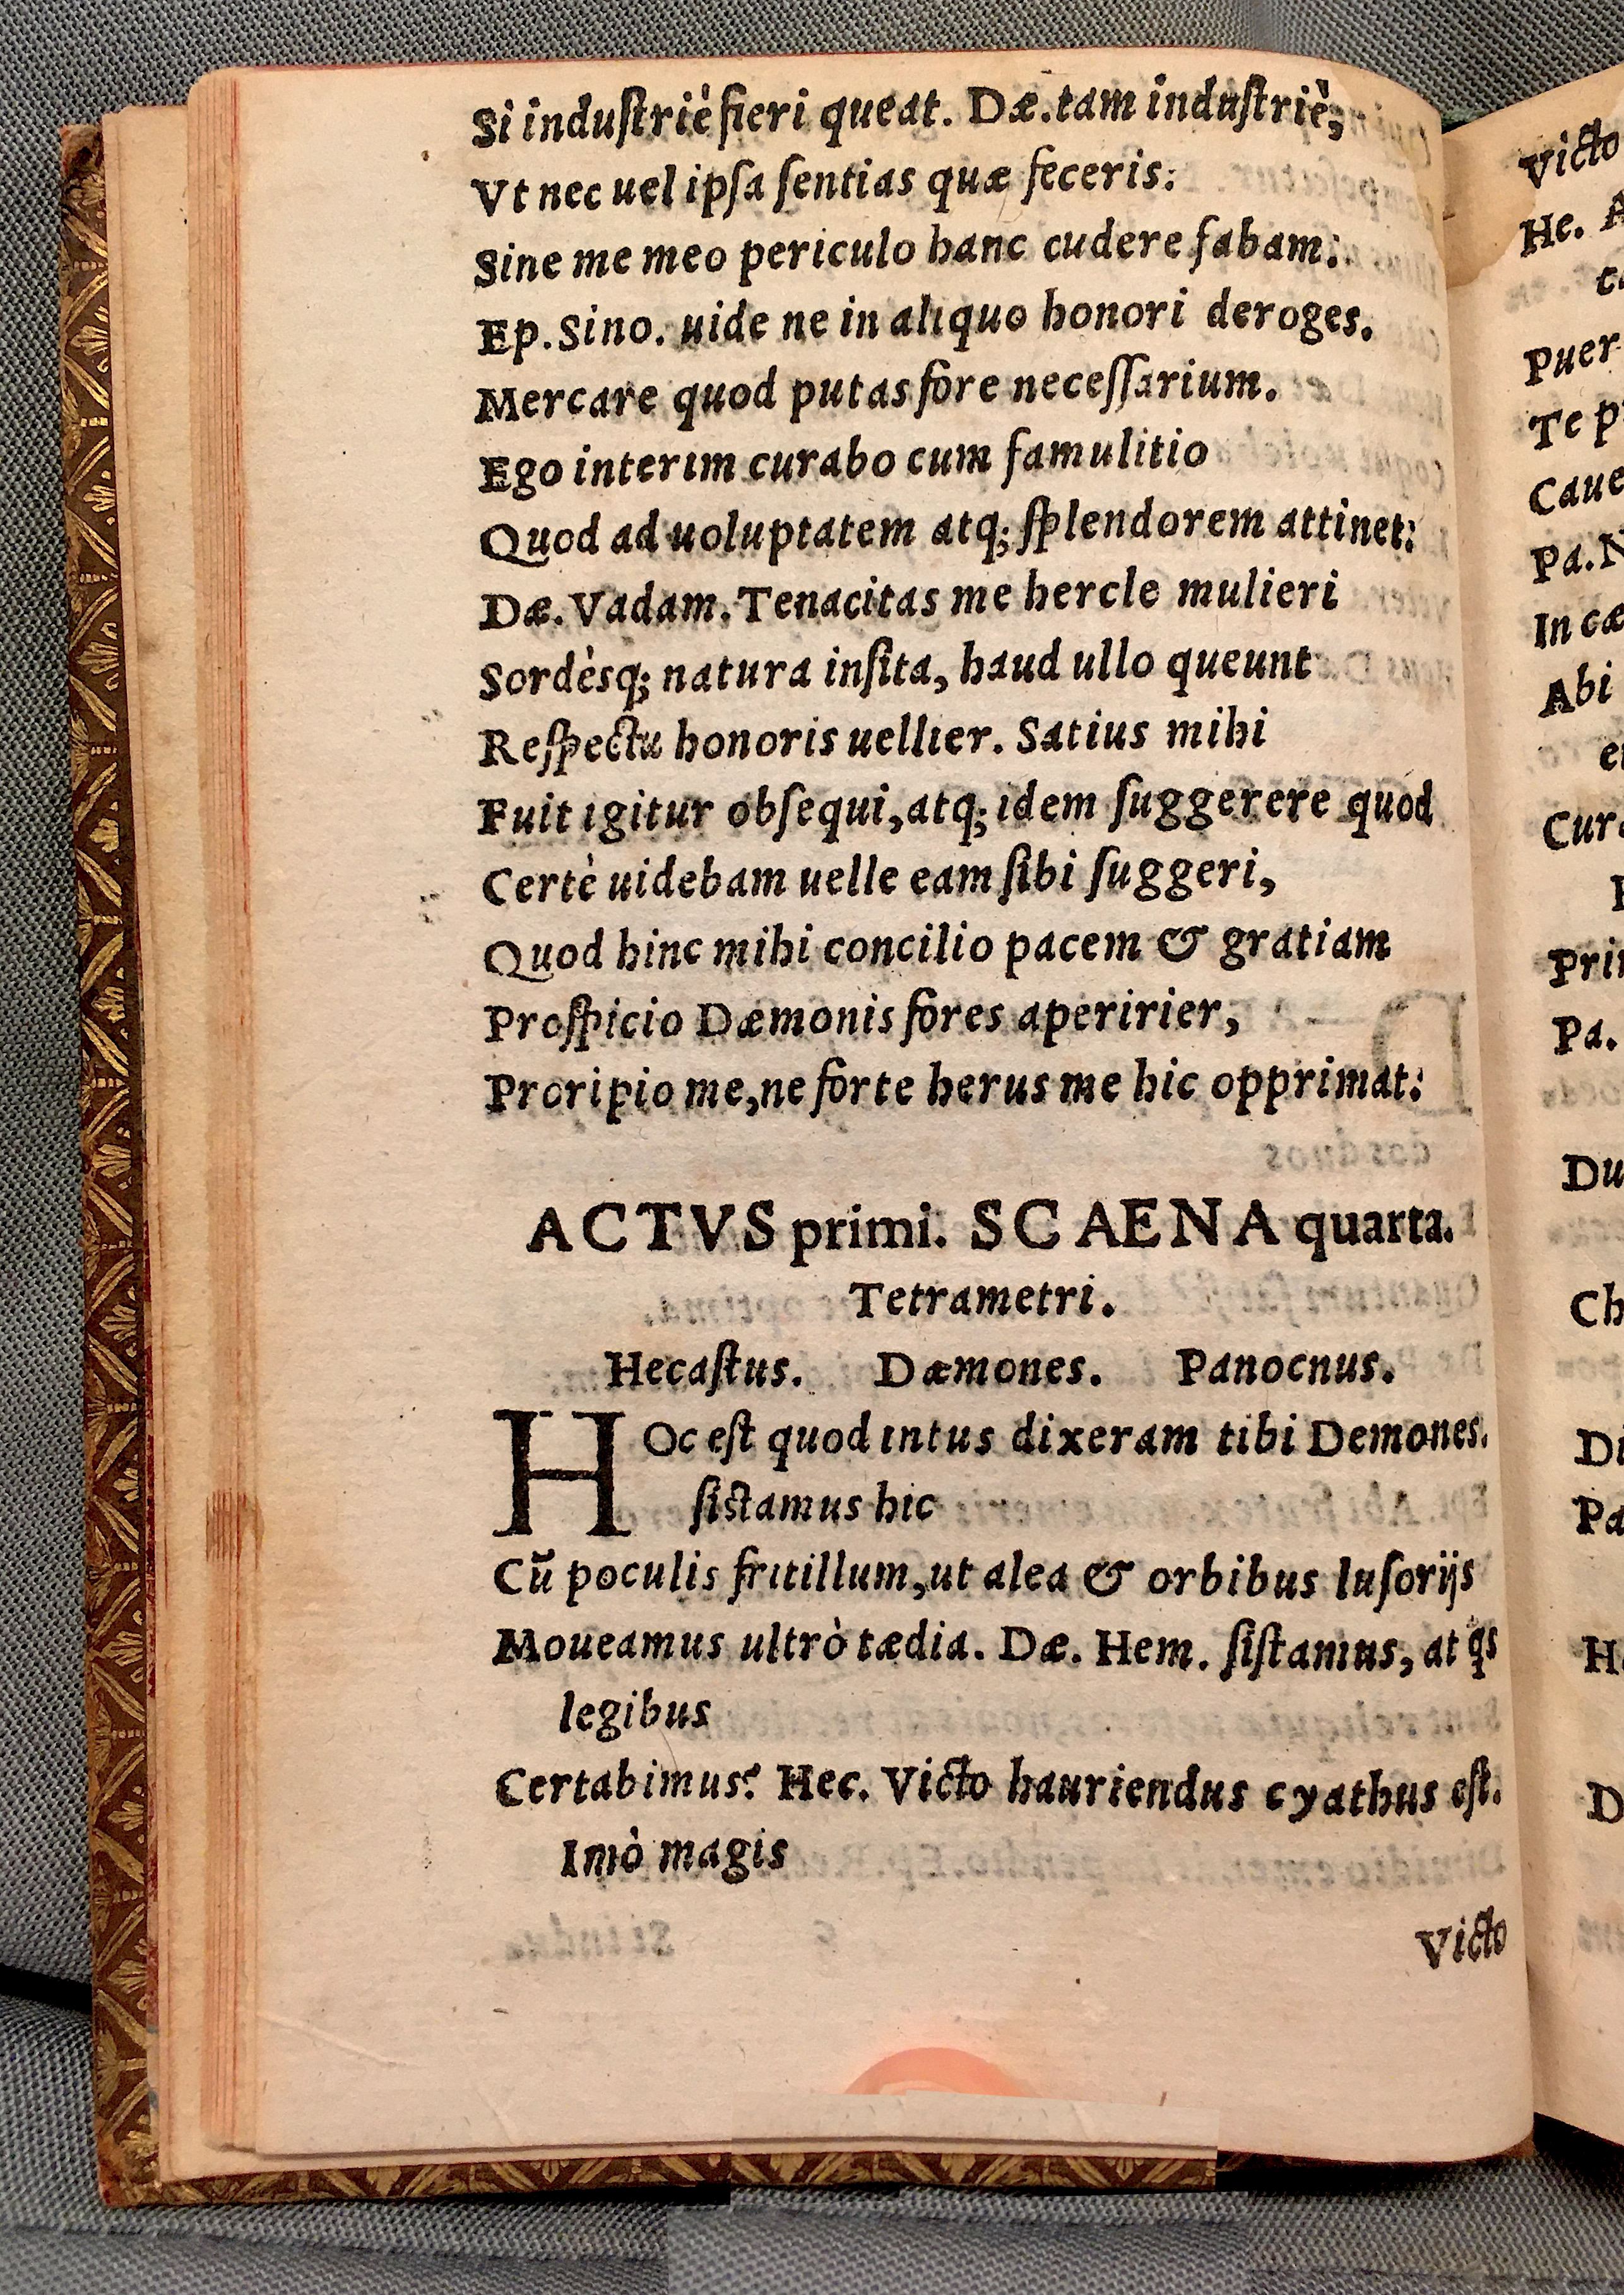 Si induſtriè fieri queat. Dæ. tam induſtriè,
Vt nec uel ipſa ſentias quæ feceris:
Sine me meo periculo hanc cudere fabam:
Ep. Sino. uide ne in aliquo honori deroges.
Mercare quod putas fore neceſſarium.
Ego interim curabo cum famulitio
Quod ad uoluptatem atq; ſplendorem attinet:
Dæ. Vadam. Tenacitas me hercle mulieri
Sordèsq; natura inſita, haud ullo queunt
Reſpectu honoris uellier. Satius mihi
Fuit igitur obſequi, atq; idem ſuggerere quod
Certè uidebam uelle eam ſibi ſuggeri,
Quod hinc mihi concilio pacem & gratiam
Proſpicio Dæmonis fores aperirier,
Proripio me, ne forte herus me hic opprimat:
ACTVS primi. SCAENA quarta.
Tetrametri.
Hecaſtus. Dæmones. Panocnus.
HOc eſt quod intus dixeram tibi Demones.
ſiſtamus hic
Cũ poculis fritillum, ut alea & orbibus luſorijs
Moueamus ultrò tædia. Dæ. Hem. ſiſtamus, at qs
legibus
Certabimus? Hec. Victo hauriendus cyathus eſt.
Imò magis
Victo
Victo
He.
Puer
Te
Caue
Pa.
In cæ
Abi
Pa.